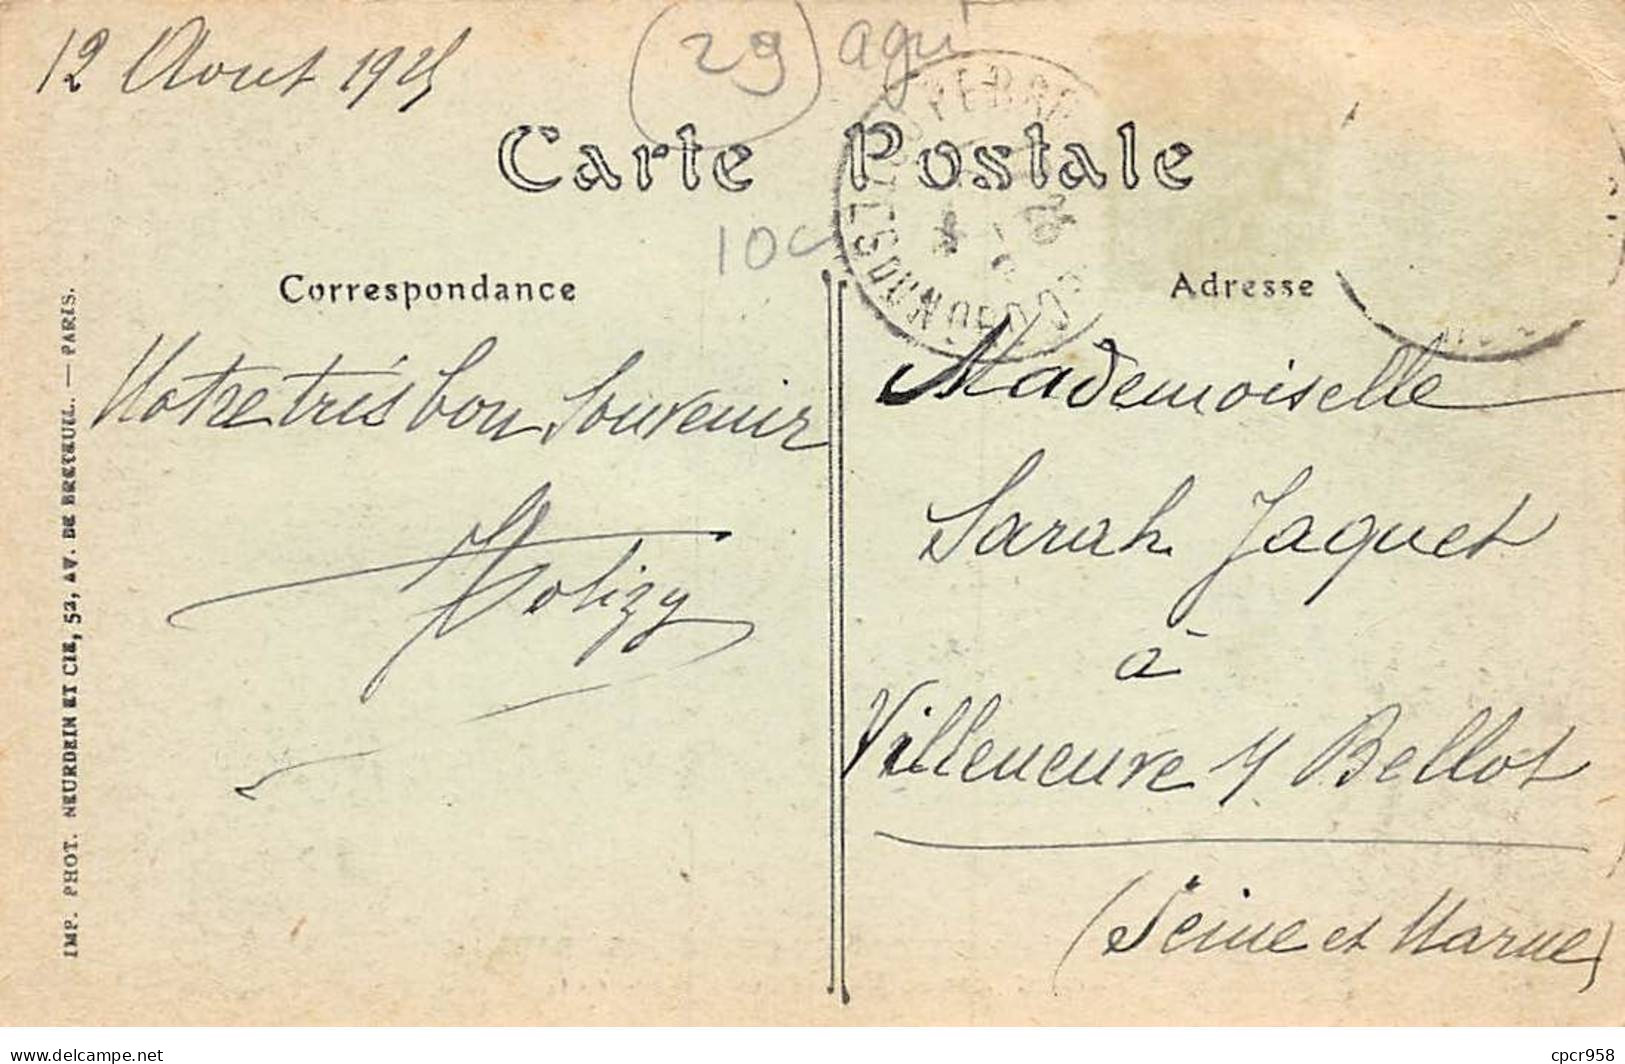 12 Aout 1925
(29) agri
Carte Postale
10c
Correspondance
Notre très bon Souvenir
Adresse
Mademoiselle
Sarah Jaquet
à
Villeneuve s/ Bellot
(Seine et Marne)
IMP. PHOT. NEURDEIN ET CIE, 52, AV. DE BRETEUIL. — PARIS.
delcampe.net
cpcr958